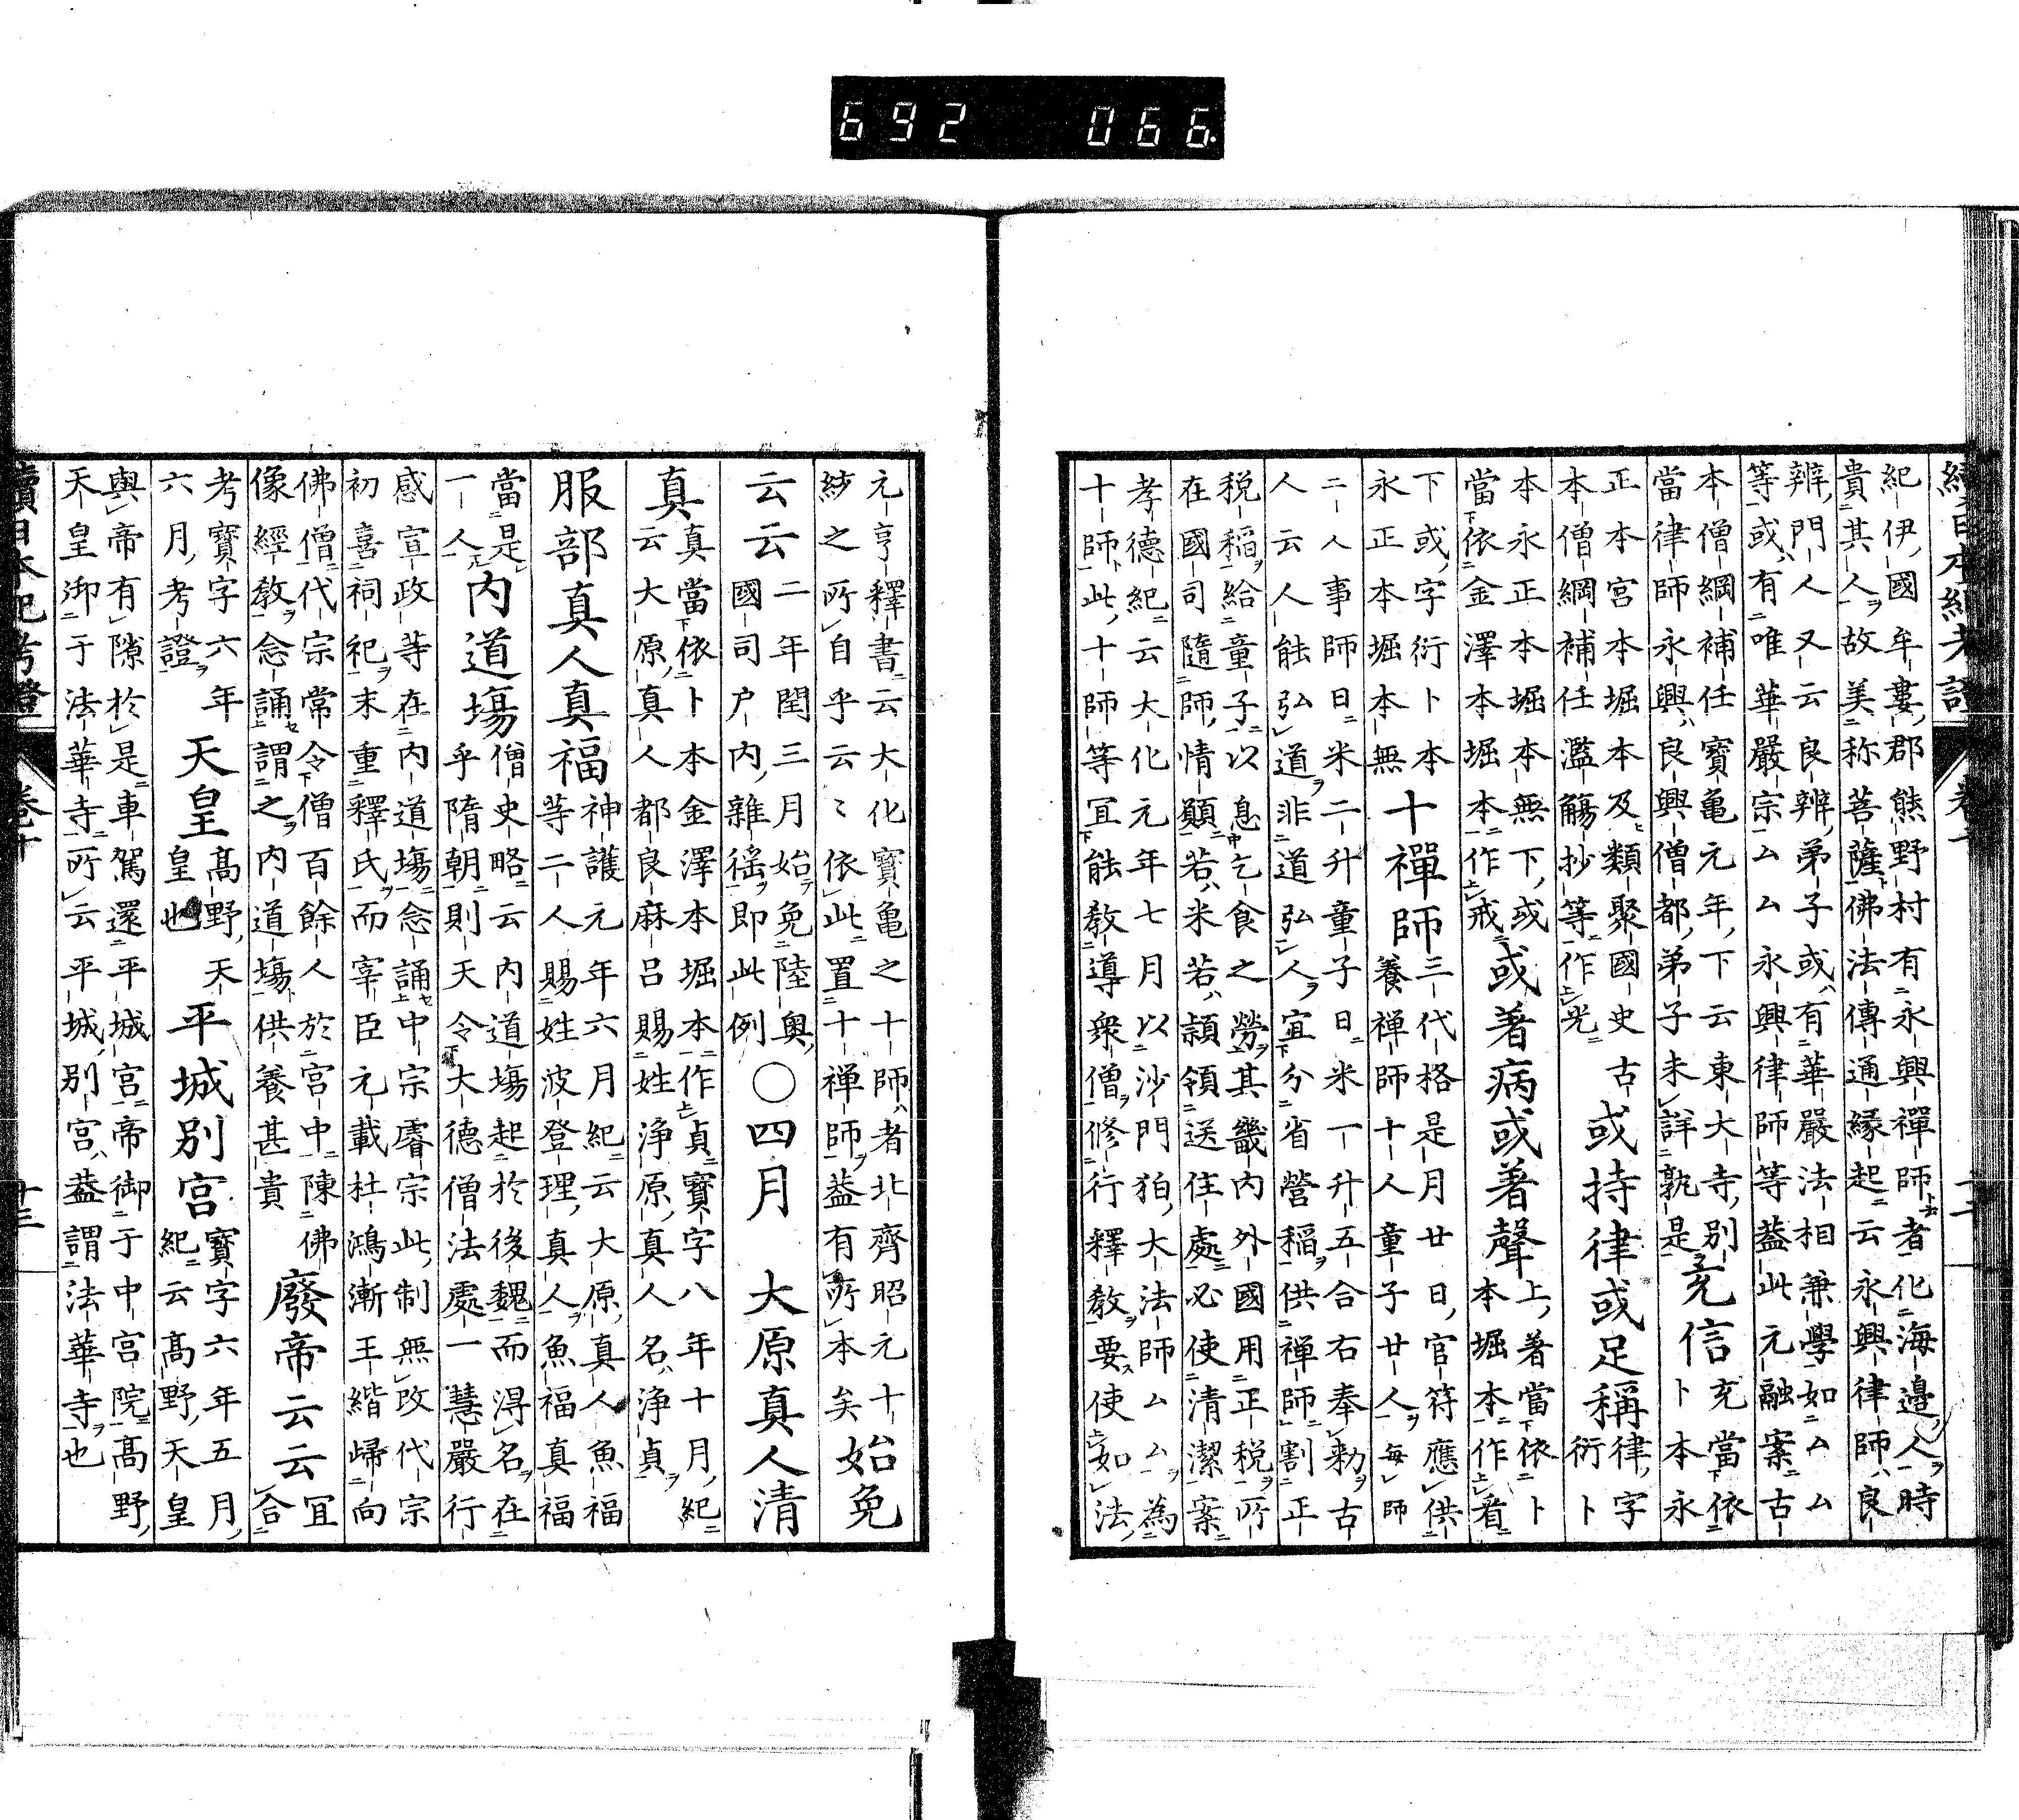 692 066
續日本紀考證 卷十 十二
紀伊國牟婁郡熊野村有永興禪師者化海邊人時
貴其人故美稱菩薩佛法傳通緣起云永興律師良
辨門人又云良辨弟子或有華嚴法相兼學如厶厶
等或有唯華嚴宗厶厶永興律師等蓋此元融案古
本僧綱補任寶龜元年下云東大寺別
當律師永興良興僧都弟子未詳孰是
充信
充當依
卜本永
正本宮本堀本及類聚國史
本僧綱補任濫觴抄等作光
古
或持律或足稱
律字
衍卜
本永正本堀本無下或
當依金澤本堀本作戒
或著病或著聲
上著當依卜
本堀本作看
下或字衍卜本
永正本堀本無
十禪師
三代格是月廿日官符應供
養禅師十人童子廿人每師
二人事師日米二升童子日米一升五合右奉勅古
人云人能弘道非道弘人宜分省營稲供禅師割正
税稲給童子以息乞食之勞其畿内外國用正税所
在國司隨師情願若米若頴領送住處必使清潔案
孝德紀云大化元年七月以沙門狛大法師厶厶為
十師此十師等宜能教導衆僧修行釋教要使如法
元亨釋書云大化寶龜之十師者北齊昭元十
紗之所自乎云々依此置十禅師蓋有所本矣
始免
云云
二年閏三月始免陸奥
國司戸内雜徭即此例
○四月 大原真人清
真
真當依卜本金澤本堀本作貞寶字八年十月紀
云大原真人都良麻呂賜姓浄原真人名浄貞
服部真人真福
神護元年六月紀云大原真人魚福
等二人賜姓波登理真人魚福真福
當是
一人
内道場
僧史略云内道場起於後魏而淂名在
乎隋朝則天令大德僧法處一慧嚴行
感宣政等在内道場念誦中宗睿宗此制無改代宗
初喜祠祀末重釋氏而宰臣元載杜鴻漸王縉歸向
佛僧代宗常令僧百餘人於宮中陳佛
像經教念誦謂之内道場供養甚貴
廢帝云云
宜
合
考寶字六年
六月考證
天皇
高野天
皇也
平城別宮
寶字六年五月
紀云高野天皇
與帝有隙於是車駕還平城宮帝御于中宮院高野
天皇御于法華寺所云平城別宮蓋謂法華寺也
續日本紀考證 卷十 十三